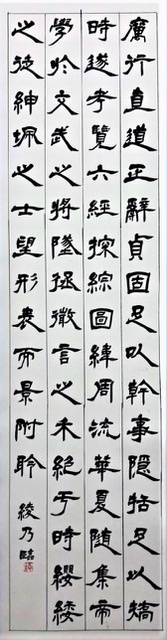 厲行直道正辭貞固足以幹事隱括足以矯
時遂考覽六經探綜圖緯周流華夏隨集帝
學收文武之將墜拯微言之未絕于時纓緌
之徒紳珮之士望形表而景附聆
綾乃臨